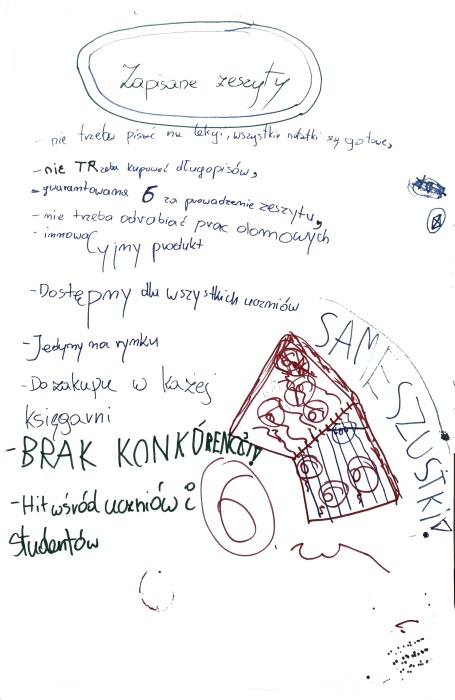 Zapisane zeszyty
- nie trzeba pisać na lekcji, wszystkie notatki są gotowe,
- nie TRzeba kupować długopisów,
- gwarantowana 6 za prowadzenie zeszytu,
- nie trzeba odrabiać prac domowych
- innowacyjny produkt
- Dostępny dla wszystkich uczniów
- Jedyny na rynku
- Do zakupu w każej
księgarni
- BRAK KONKURENCJI!
- Hit wśród uczniów i
studentów
SAME SZUSTKI!
6
6
6
6
6
6
6